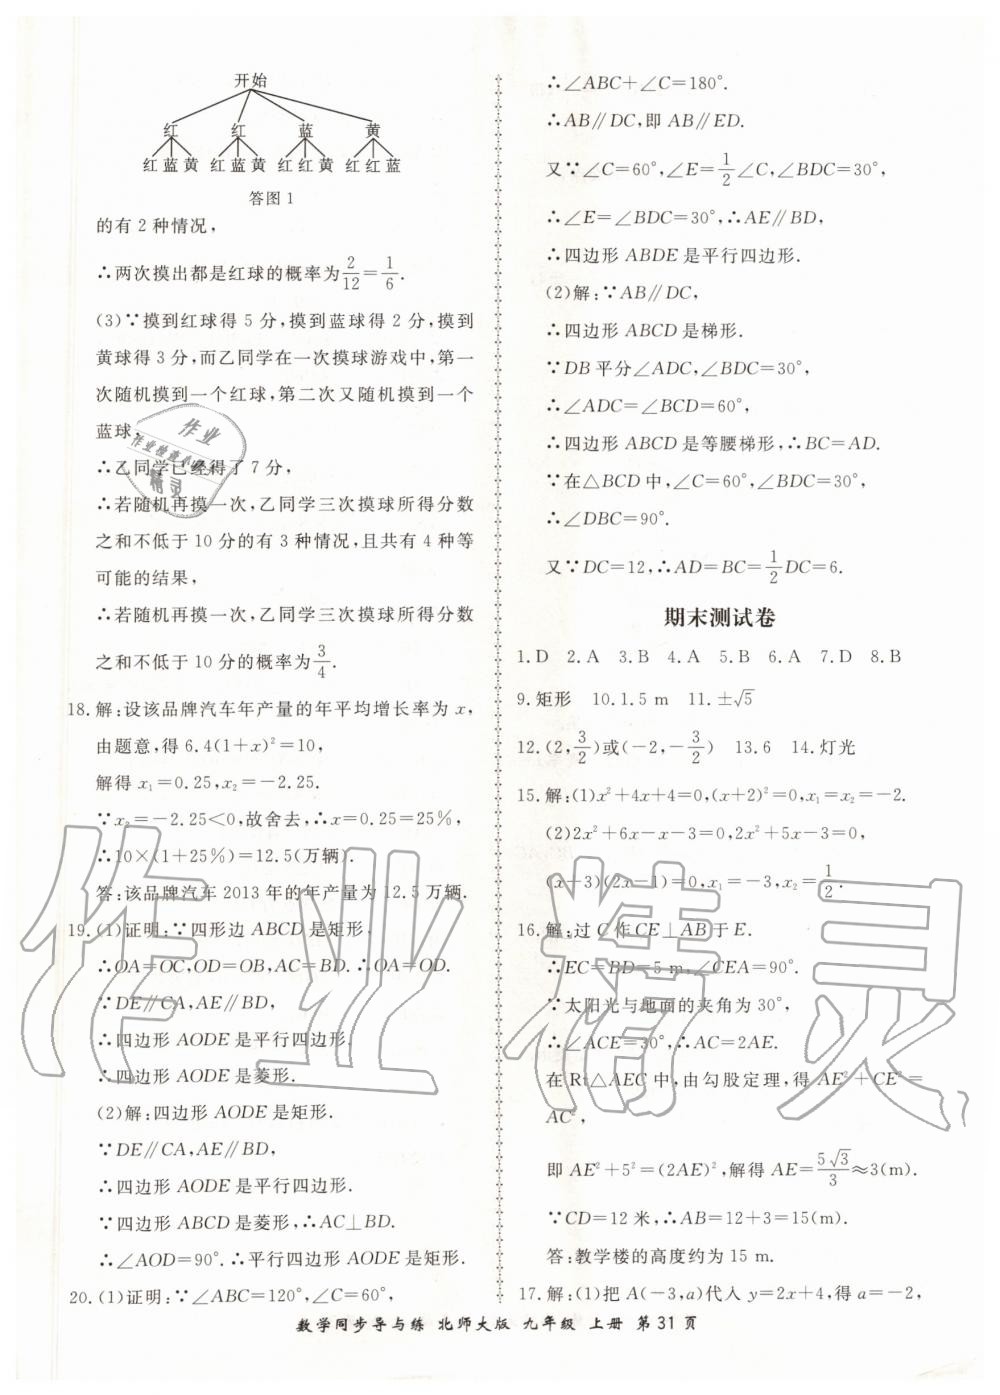 开始
红 红 蓝 黄
红 蓝 黄 红 蓝 黄 红 红 黄 红 红 蓝
答图 1
的有 2 种情况,
∴两次摸出都是红球的概率为2/12=1/6.
(3)∵摸到红球得 5 分,摸到蓝球得 2 分,摸到
黄球得 3 分,而乙同学在一次摸球游戏中,第一
次随机摸到一个红球,第二次又随机摸到一个
蓝球,
∴乙同学已经得了 7 分,
∴若随机再摸一次,乙同学三次摸球所得分数
之和不低于 10 分的有 3 种情况,且共有 4 种等
可能的结果,
∴若随机再摸一次,乙同学三次摸球所得分数
之和不低于 10 分的概率为3/4.
18. 解:设该品牌汽车年产量的年平均增长率为 x,
由题意,得 6.4(1+x)²=10,
解得 x₁=0.25,x₂=-2.25.
∵x₂=-2.25<0,故舍去,∴x=0.25=25%,
∴10×(1+25%)=12.5(万辆).
答:该品牌汽车 2013 年的年产量为 12.5 万辆.
19. (1)证明:∵四形边 ABCD 是矩形,
∴OA=OC,OD=OB,AC=BD.∴OA=OD.
∵DE∥CA,AE∥BD,
∴四边形 AODE 是平行四边形.
∴四边形 AODE 是菱形.
(2)解:四边形 AODE 是矩形.
∵DE∥CA,AE∥BD,
∴四边形 AODE 是平行四边形.
∵四边形 ABCD 是菱形,∴AC⊥BD.
∴∠AOD=90°.∴平行四边形 AODE 是矩形.
20. (1)证明:∵∠ABC=120°,∠C=60°,
∴∠ABC+∠C=180°.
∴AB∥DC,即 AB∥ED.
又∵∠C=60°,∠E=1/2∠C,∠BDC=30°,
∴∠E=∠BDC=30°,∴AE∥BD,
∴四边形 ABDE 是平行四边形.
(2)解:∵AB∥DC,
∴四边形 ABCD 是梯形.
∵DB 平分∠ADC,∠BDC=30°,
∴∠ADC=∠BCD=60°,
∴四边形 ABCD 是等腰梯形,∴BC=AD.
∵在△BCD 中,∠C=60°,∠BDC=30°,
∴∠DBC=90°.
又∵DC=12,∴AD=BC=1/2DC=6.
期末测试卷
1. D 2. A 3. B 4. A 5. B 6. A 7. D 8. B
9. 矩形 10. 1.5 m 11. ±√5
12. (2,3/2)或(-2,-3/2) 13. 6 14. 灯光
15. 解:(1)x²+4x+4=0,(x+2)²=0,x₁=x₂=-2.
(2)2x²+6x-x-3=0,2x²+5x-3=0,
(x+3)(2x-1)=0,x₁=-3,x₂=1/2.
16. 解:过 C 作 CE⊥AB 于 E.
∴EC=BD=5 m,∠CEA=90°.
∵太阳光与地面的夹角为 30°,
∴∠ACE=30°,∴AC=2AE.
在 Rt△AEC 中,由勾股定理,得 AE²+CE²=
AC²,
即 AE²+5²=(2AE)²,解得 AE=5√3/3≈3(m).
∵CD=12 米,∴AB=12+3=15(m).
答:教学楼的高度约为 15 m.
17. 解:(1)把 A(-3,a)代入 y=2x+4,得 a=-2,
数学同步导与练 北师大版 九年级 上册 第 31 页
作业
作业检查
精灵
作业精灵